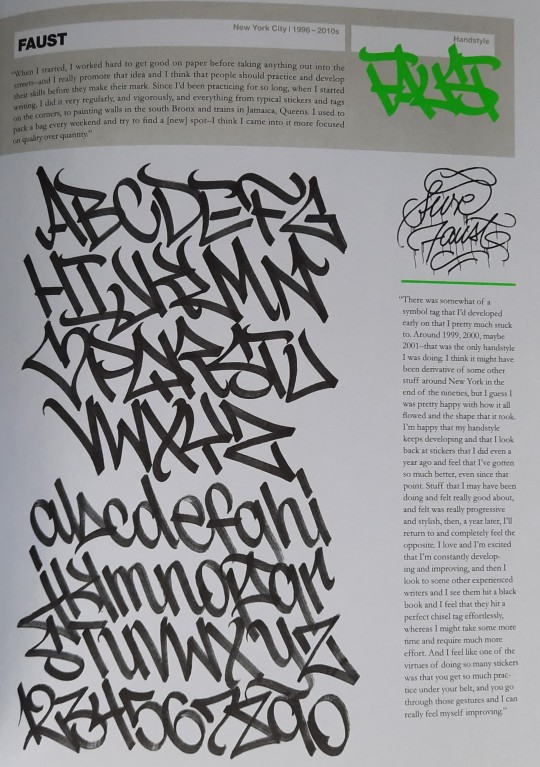 FAUST
New York City | 1996–2010s
Handstyle
FAUST
"When I started, I worked hard to get good on paper before taking anything out into the
streets—and I really promote that idea and I think that people should practice and develop
their skills before they make their mark. Since I'd been practicing for so long, when I started
writing, I did it very regularly, and vigorously, and everything from typical stickers and tags
on the corners, to painting walls in the south Bronx and trains in Jamaica, Queens. I used to
pack a bag every weekend and try to find a [new] spot—I think I came into it more focused
on quality over quantity."
ABCDEFG
HIJKLMN
OPQRSTU
VWXYZ
abcdefghi
jklmnopqr
stuvwxyz
1234567890
Faust
"There was somewhat of a
symbol tag that I'd developed
early on that I pretty much stuck
to. Around 1999, 2000, maybe
2001—that was the only handstyle
I was doing. I think it might have
been derivative of some other
stuff around New York in the
end of the nineties, but I guess I
was pretty happy with how it all
flowed and the shape that it took.
I'm happy that my handstyle
keeps developing and that I look
back at stickers that I did even a
year ago and feel that I've gotten
so much better, even since that
point. Stuff that I may have been
doing and felt really good about,
and felt was really progressive
and stylish, then, a year later, I'll
return to and completely feel the
opposite. I love and I'm excited
that I'm constantly develop-
ing and improving, and then I
look to some other experienced
writers and I see them hit a black
book and I feel that they hit a
perfect chisel tag effortlessly,
whereas I might take some more
time and require much more
effort. And I feel like one of the
virtues of doing so many stickers
was that you get so much prac-
tice under your belt, and you go
through those gestures and I can
really feel myself improving."